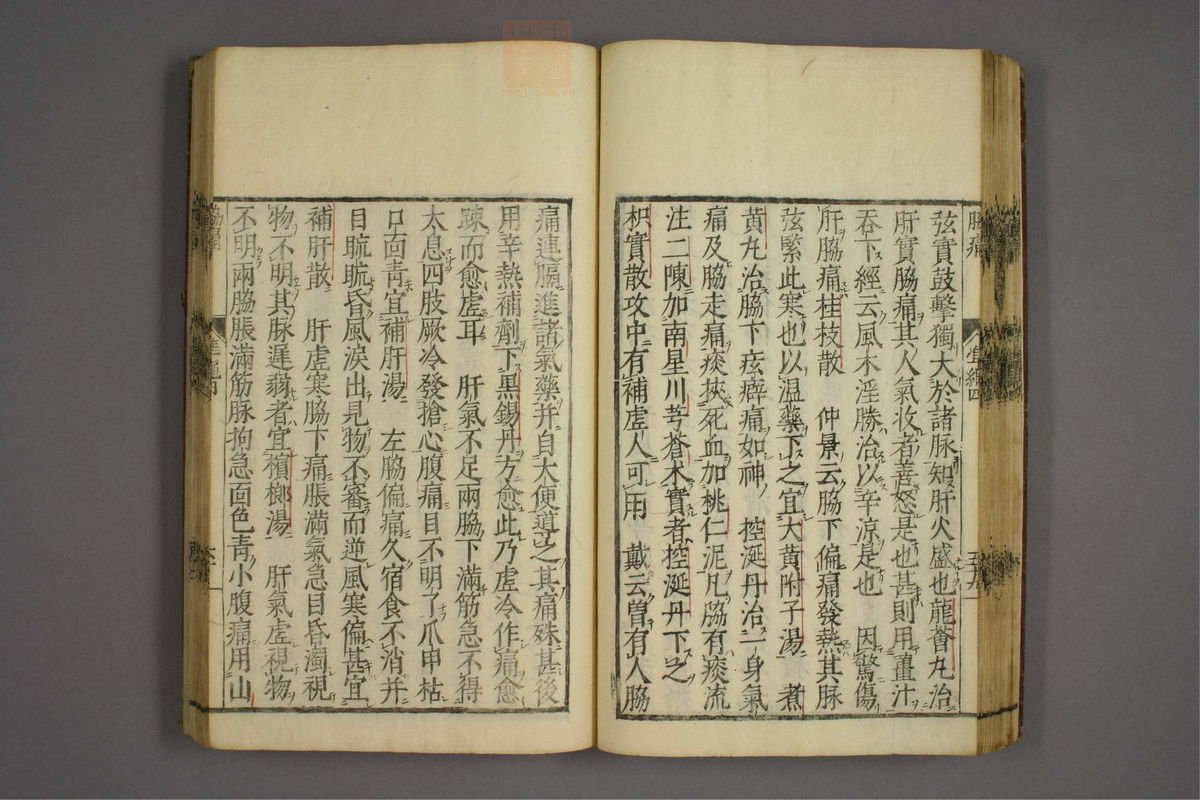 弦實鼓擊獨大於諸脉知肝火盛也龍薈丸治
肝實脇痛其人氣收者善怒是也甚則用薑汁
吞下經云風木淫勝治以辛涼是也　因驚傷
肝脇痛桂枝散　仲景云脇下偏痛發熱其脉
弦緊此寒也以温藥下之宜大黄附子湯　煮
黄丸治脇下痃癖痛如神　控涎丹治一身氣
痛及脇走痛痰挾死血加桃仁泥凡脇有痰流
注二陳加南星川芎蒼术實者控涎丹下之
枳實散攻中有補虚人可用　戴云曽有人脇
痛連膈進諸氣藥并自大便導之其痛殊甚後
用辛熱補劑下黒錫丹方愈此乃虚冷作痛愈
踈而愈虚耳　肝氣不足兩脇下滿筋急不得
太息四肢厥冷發搶心腹痛目不明了爪甲枯
口面青宜補肝湯　左脇偏痛久宿食不消并
目䀮䀮昏風淚出見物不審而逆風寒偏甚宜
補肝散　肝虚寒脇下痛脹滿氣急目昏濁視
物不明其脉遲弱者宜檳榔湯　肝氣虚視物
不明兩脇脹滿筋脉拘急面色青小腹痛用山
脇痛